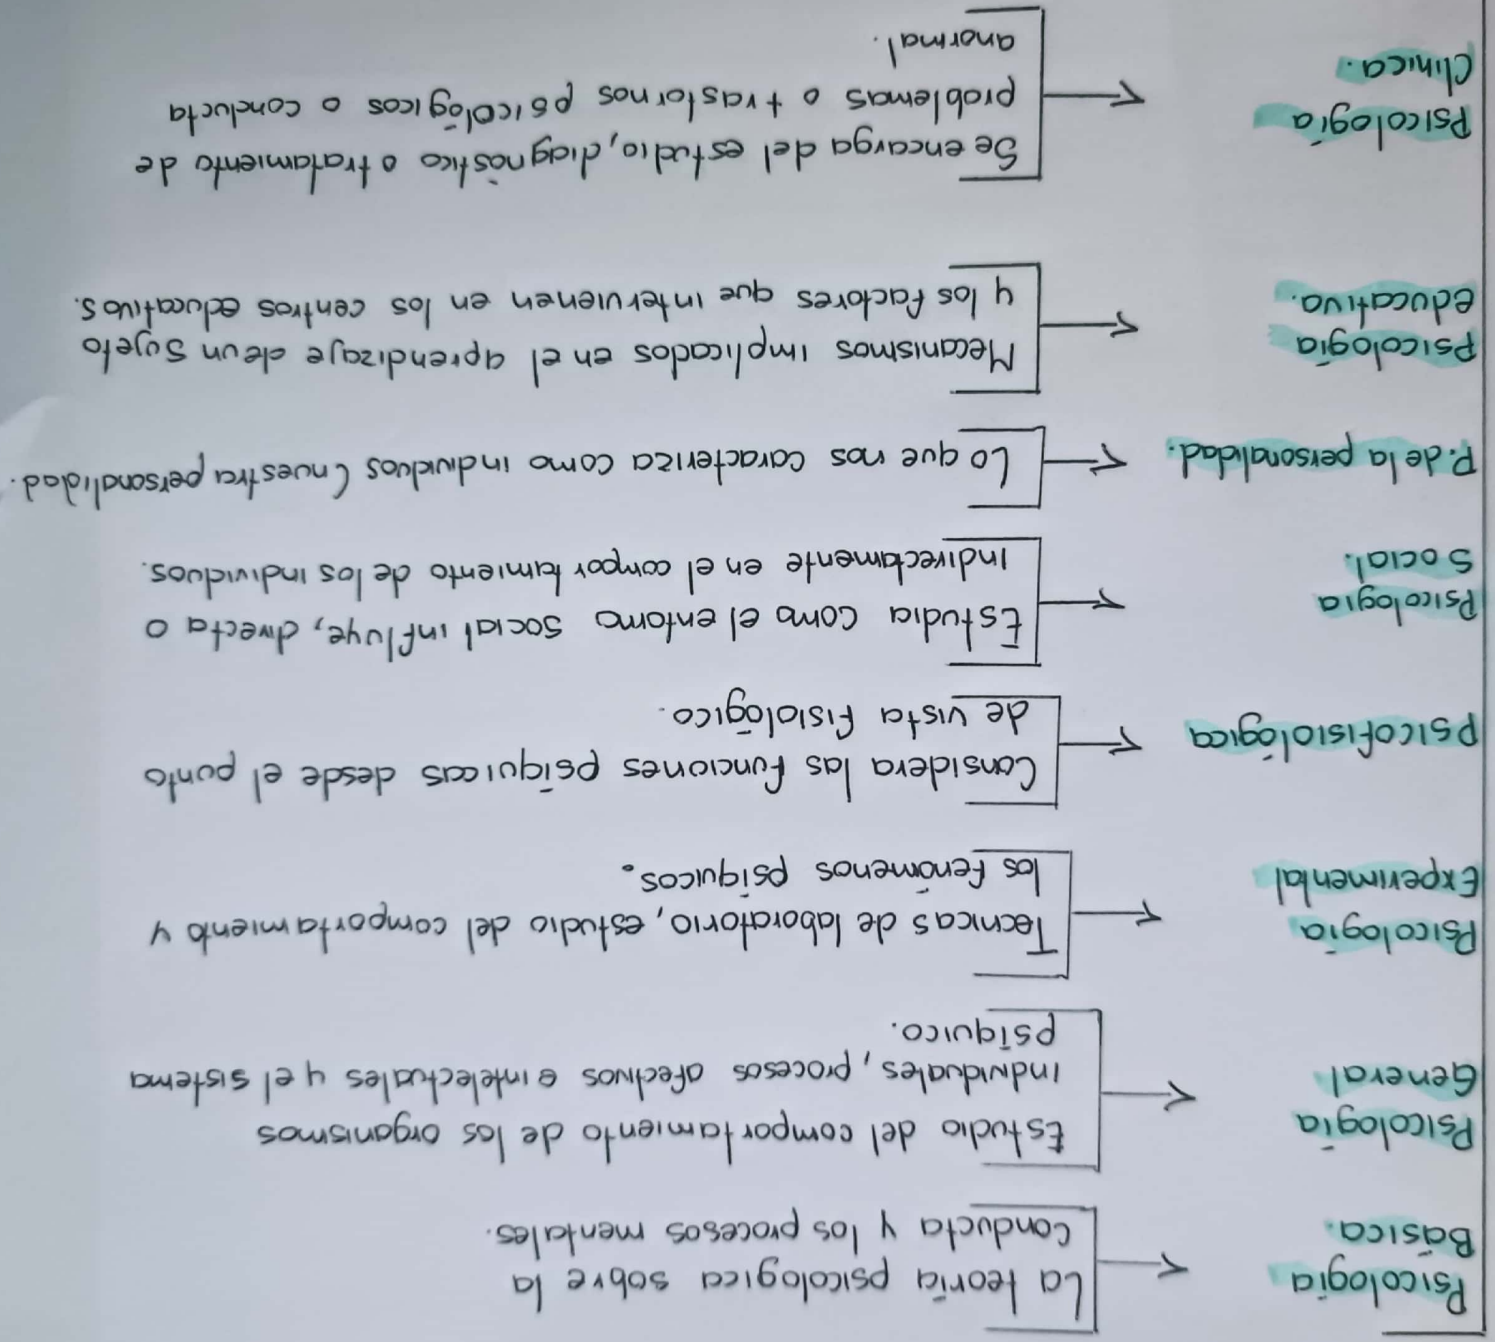 Psicología
Básica.
La teoría psicologica sobre la
conducta y los procesos mentales.
Psicología
General
Estudio del comportamiento de los organismos
individuales, procesos afectivos e intelectuales y el sistema
psíquico.
Psicología
Experimental
Tecnicas de laboratorio, estudio del comportamiento y
los fenómenos psíquicos.
Psicofisiológica
Considera las funciones psíquicas desde el punto
de vista fisiológico.
Psicologia
Social.
Estudia como el entorno social influye, directa o
indirectamente en el comportamiento de los individuos.
P. de la personalidad.
Lo que nos caracteriza como individuos (nuestra personalidad.
Psicología
educativa.
Mecanismos implicados en el aprendizaje de un sujeto
y los factores que intervienen en los centros educativos.
Psicología
Clinica.
Se encarga del estudio, diagnóstico o tratamiento de
problemas o trastornos psicológicos o conducta
anormal.